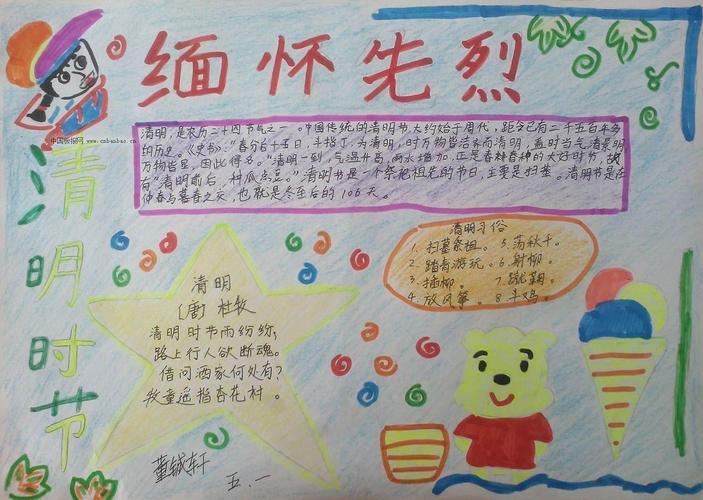 缅怀先烈
中国板报网
www.cnbanbao.cn
清明时节
清明，是农历二十四节气之一。中国传统的清明节大约始于周代，距今已有二千五百年多
的历史。《史书》："春分后十五日，斗指丁，为清明，时万物皆洁齐而清明，盖时当气清景明
万物皆显，因此得名。"清明一到，气温升高，雨水增加，正是春耕春种的大好时节，故
有"清明前后，种瓜点豆。"清明节是一个祭祀祖先的节日，主要是扫墓。清明节是在
仲春与暮春之交，也就是冬至后的106天。
清明习俗
1. 扫墓祭祖。 5. 荡秋千。
2. 踏青游玩。 6. 射柳。
3. 插柳。 7. 蹴鞠。
4. 放风筝。 8. 斗鸡。
清明
[唐] 杜牧
清明时节雨纷纷，
路上行人欲断魂。
借问洒家何处有？
牧童遥指杏花村。
董铖轩
五.一